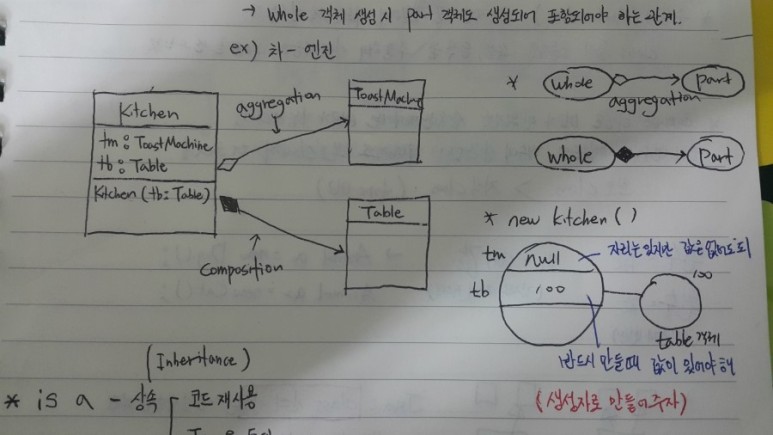 → whole 객체 생성시 part 객체도 생성되어 포함되어야 하는 관계.
ex) 차 - 엔진
Kitchen
tm : ToastMachine
tb : Table
Kitchen (tb: Table)
aggregation
ToastMachine
composition
Table
* whole part
aggregation
whole part
* new kitchen ( )
tm null 자리는 있지만 값은 없어도 되
tb 100
100
table 객체
반드시 만들때 값이 있어야 해
(생성자로 만들어주자)
(Inheritance)
* is a - 상속 코드 재사용